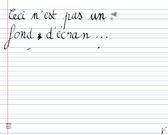 Ceci n'est pas un
fond d'écran...